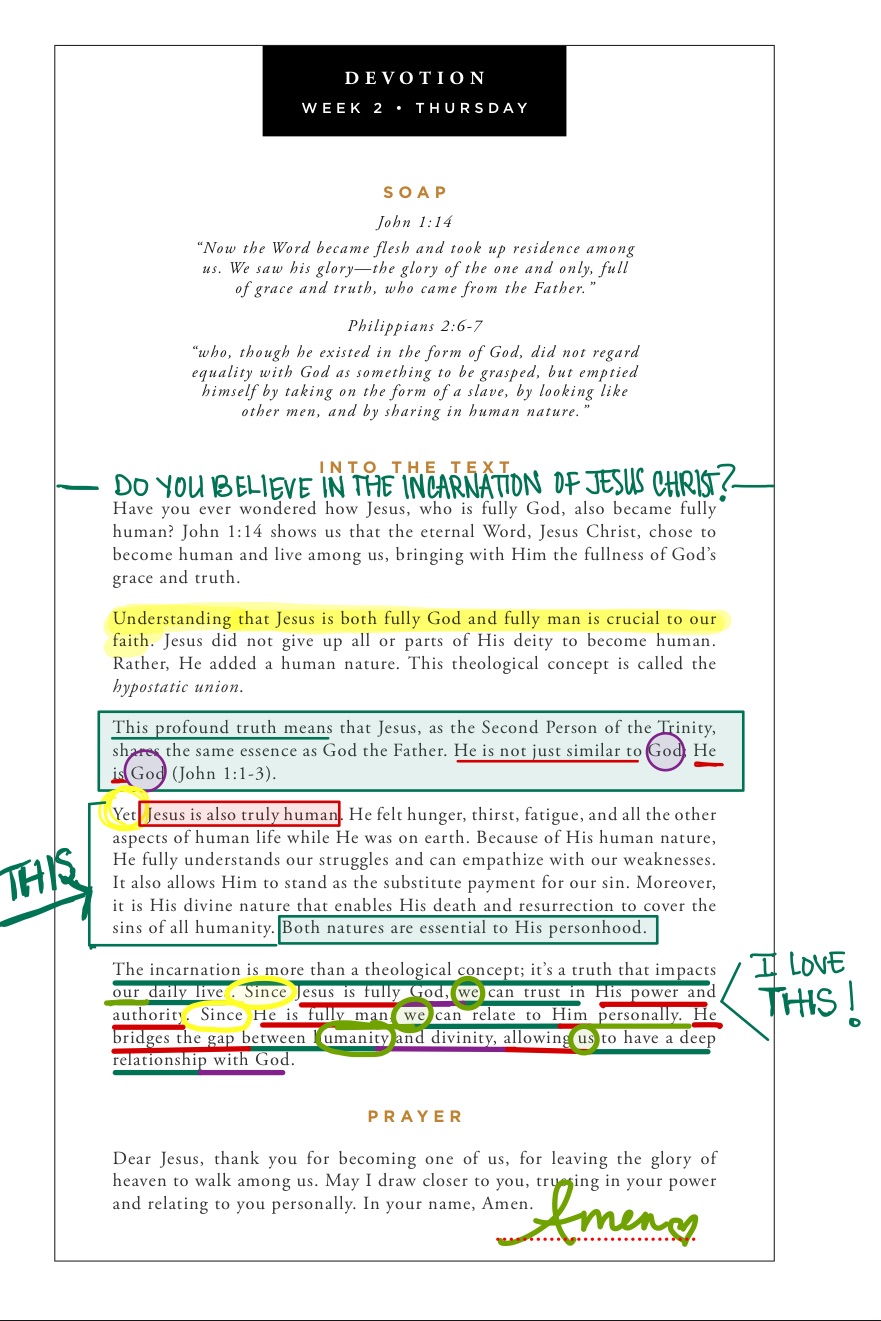 DEVOTION
WEEK 2 • THURSDAY
SOAP
John 1:14
“Now the Word became flesh and took up residence among
us. We saw his glory—the glory of the one and only, full
of grace and truth, who came from the Father.”
Philippians 2:6-7
“who, though he existed in the form of God, did not regard
equality with God as something to be grasped, but emptied
himself by taking on the form of a slave, by looking like
other men, and by sharing in human nature.”
INTO THE TEXT
DO YOU BELIEVE IN THE INCARNATION OF JESUS CHRIST?
Have you ever wondered how Jesus, who is fully God, also became fully
human? John 1:14 shows us that the eternal Word, Jesus Christ, chose to
become human and live among us, bringing with Him the fullness of God’s
grace and truth.
Understanding that Jesus is both fully God and fully man is crucial to our
faith. Jesus did not give up all or parts of His deity to become human.
Rather, He added a human nature. This theological concept is called the
hypostatic union.
This profound truth means that Jesus, as the Second Person of the Trinity,
shares the same essence as God the Father. He is not just similar to God; He
is God (John 1:1-3).
Yet Jesus is also truly human. He felt hunger, thirst, fatigue, and all the other
aspects of human life while He was on earth. Because of His human nature,
He fully understands our struggles and can empathize with our weaknesses.
THIS
It also allows Him to stand as the substitute payment for our sin. Moreover,
it is His divine nature that enables His death and resurrection to cover the
sins of all humanity. Both natures are essential to His personhood.
The incarnation is more than a theological concept; it’s a truth that impacts
our daily lives. Since Jesus is fully God, we can trust in His power and
authority. Since He is fully man, we can relate to Him personally. He
bridges the gap between humanity and divinity, allowing us to have a deep
relationship with God.
I LOVE
THIS!
PRAYER
Dear Jesus, thank you for becoming one of us, for leaving the glory of
heaven to walk among us. May I draw closer to you, trusting in your power
and relating to you personally. In your name, Amen.
Amen